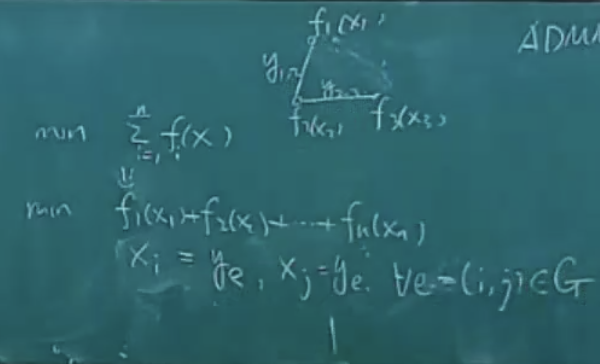 f₁(x₁)
ADMM
y₁,₂
y₂,₃
f₂(x₂) f₃(x₃)
min Σⁿᵢ₌₁ fᵢ(x)
min f₁(x₁)+f₂(x₂)+⋯+fₙ(xₙ)
xᵢ = yₑ, xⱼ = yₑ. ∀e=(i,j)∈G